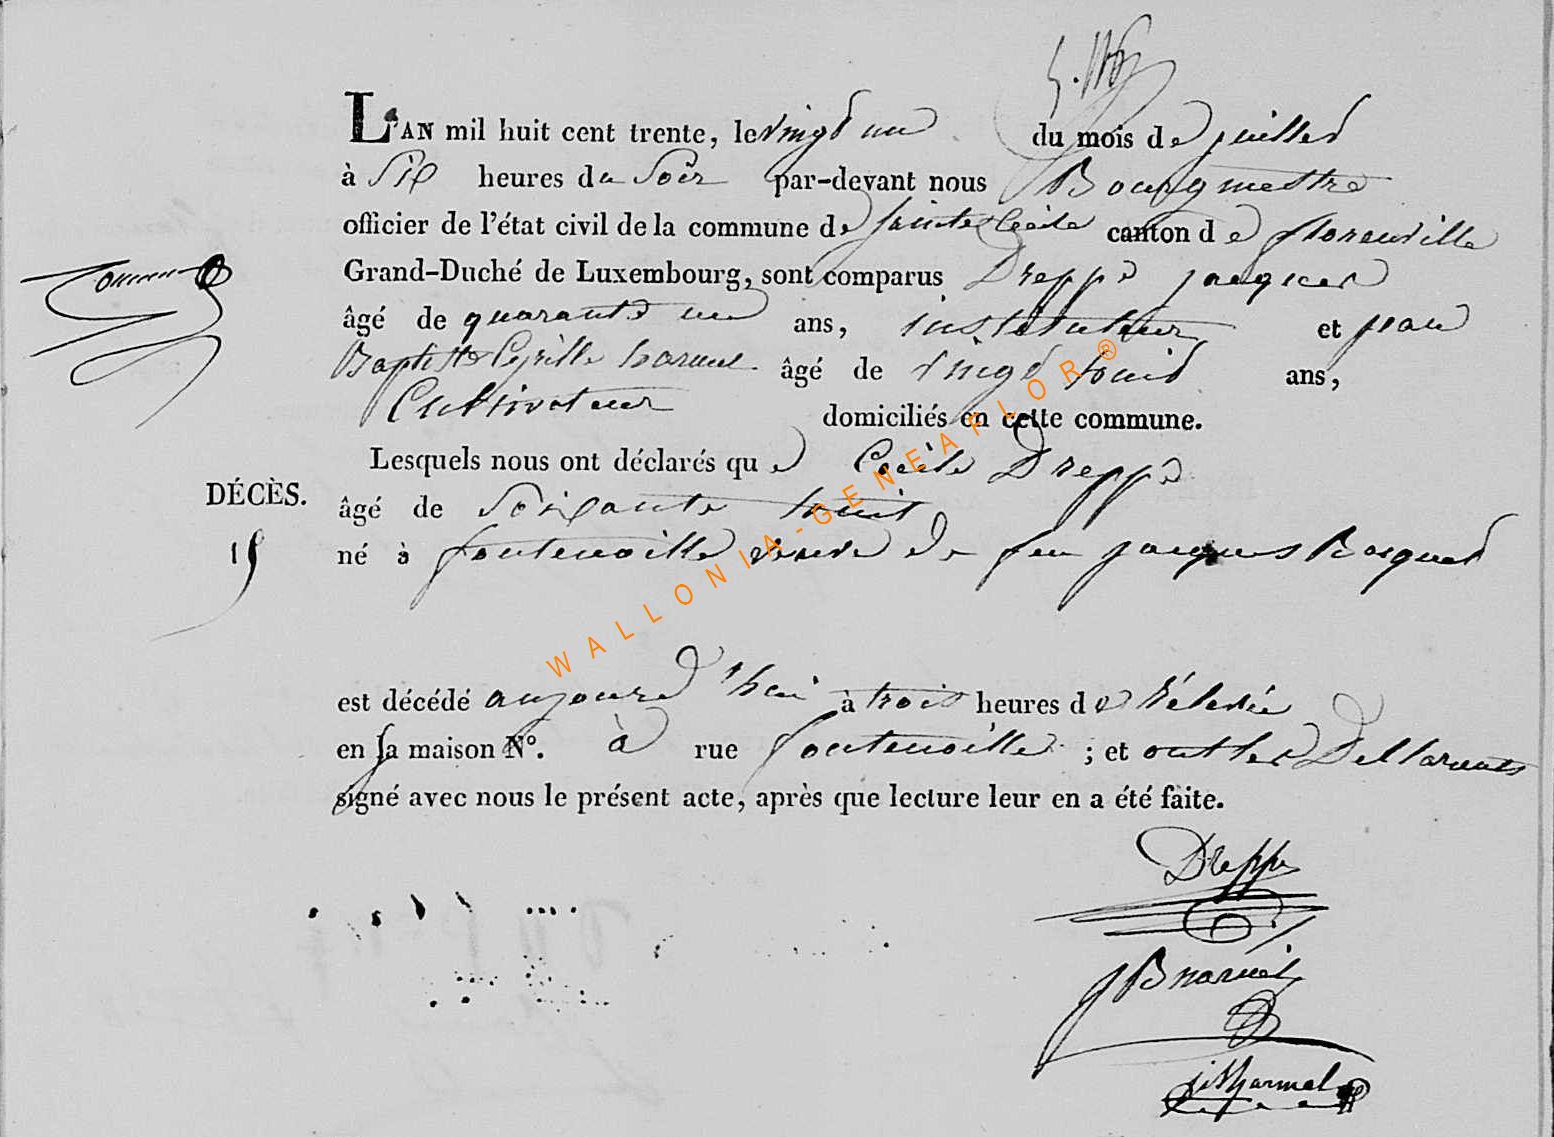 L'AN mil huit cent trente, le vingt un du mois de juillet
à Six heures du Soir par-devant nous Bourgmestre
officier de l'état civil de la commune de Sainte Cécile canton de florenville
Grand-Duché de Luxembourg, sont comparus Dreppe jacques
âgé de quarante un ans, instituteur et jean
Baptiste Cyrille âgé de Vingt huit ans,
Cultivateur domiciliés en cette commune.
Lesquels nous ont déclarés que Cécile Dreppe
DÉCÈS. âgé de Soixante huit
15 né à fontenoille veuve de feu jacques
est décédé aujourd'hui à trois heures de
en sa maison N°. à rue fontenoille ; et ont les Déclarants
signé avec nous le présent acte, après que lecture leur en a été faite.
Dreppe
WALLONIA-GENEAFLOR®